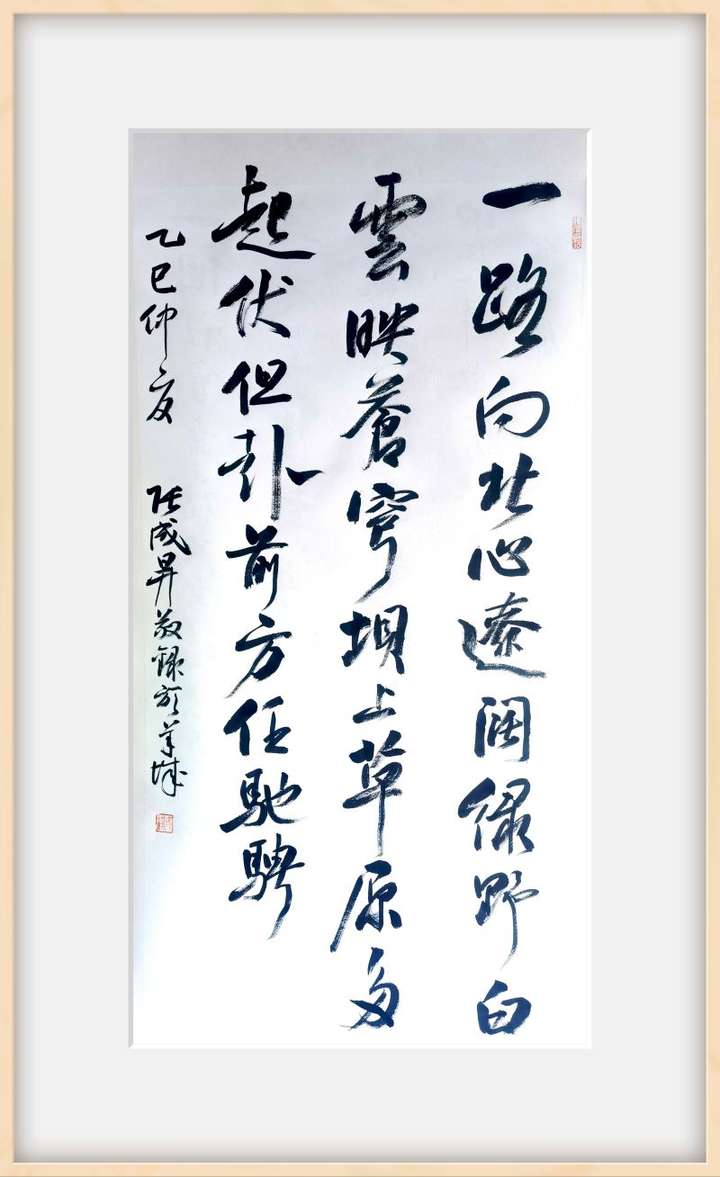 一路向北心遠闊绿野白
雲映蒼穹坝上草原多
起伏但赴前方任馳騁
乙巳仲夏 张成昇敬録於羊城